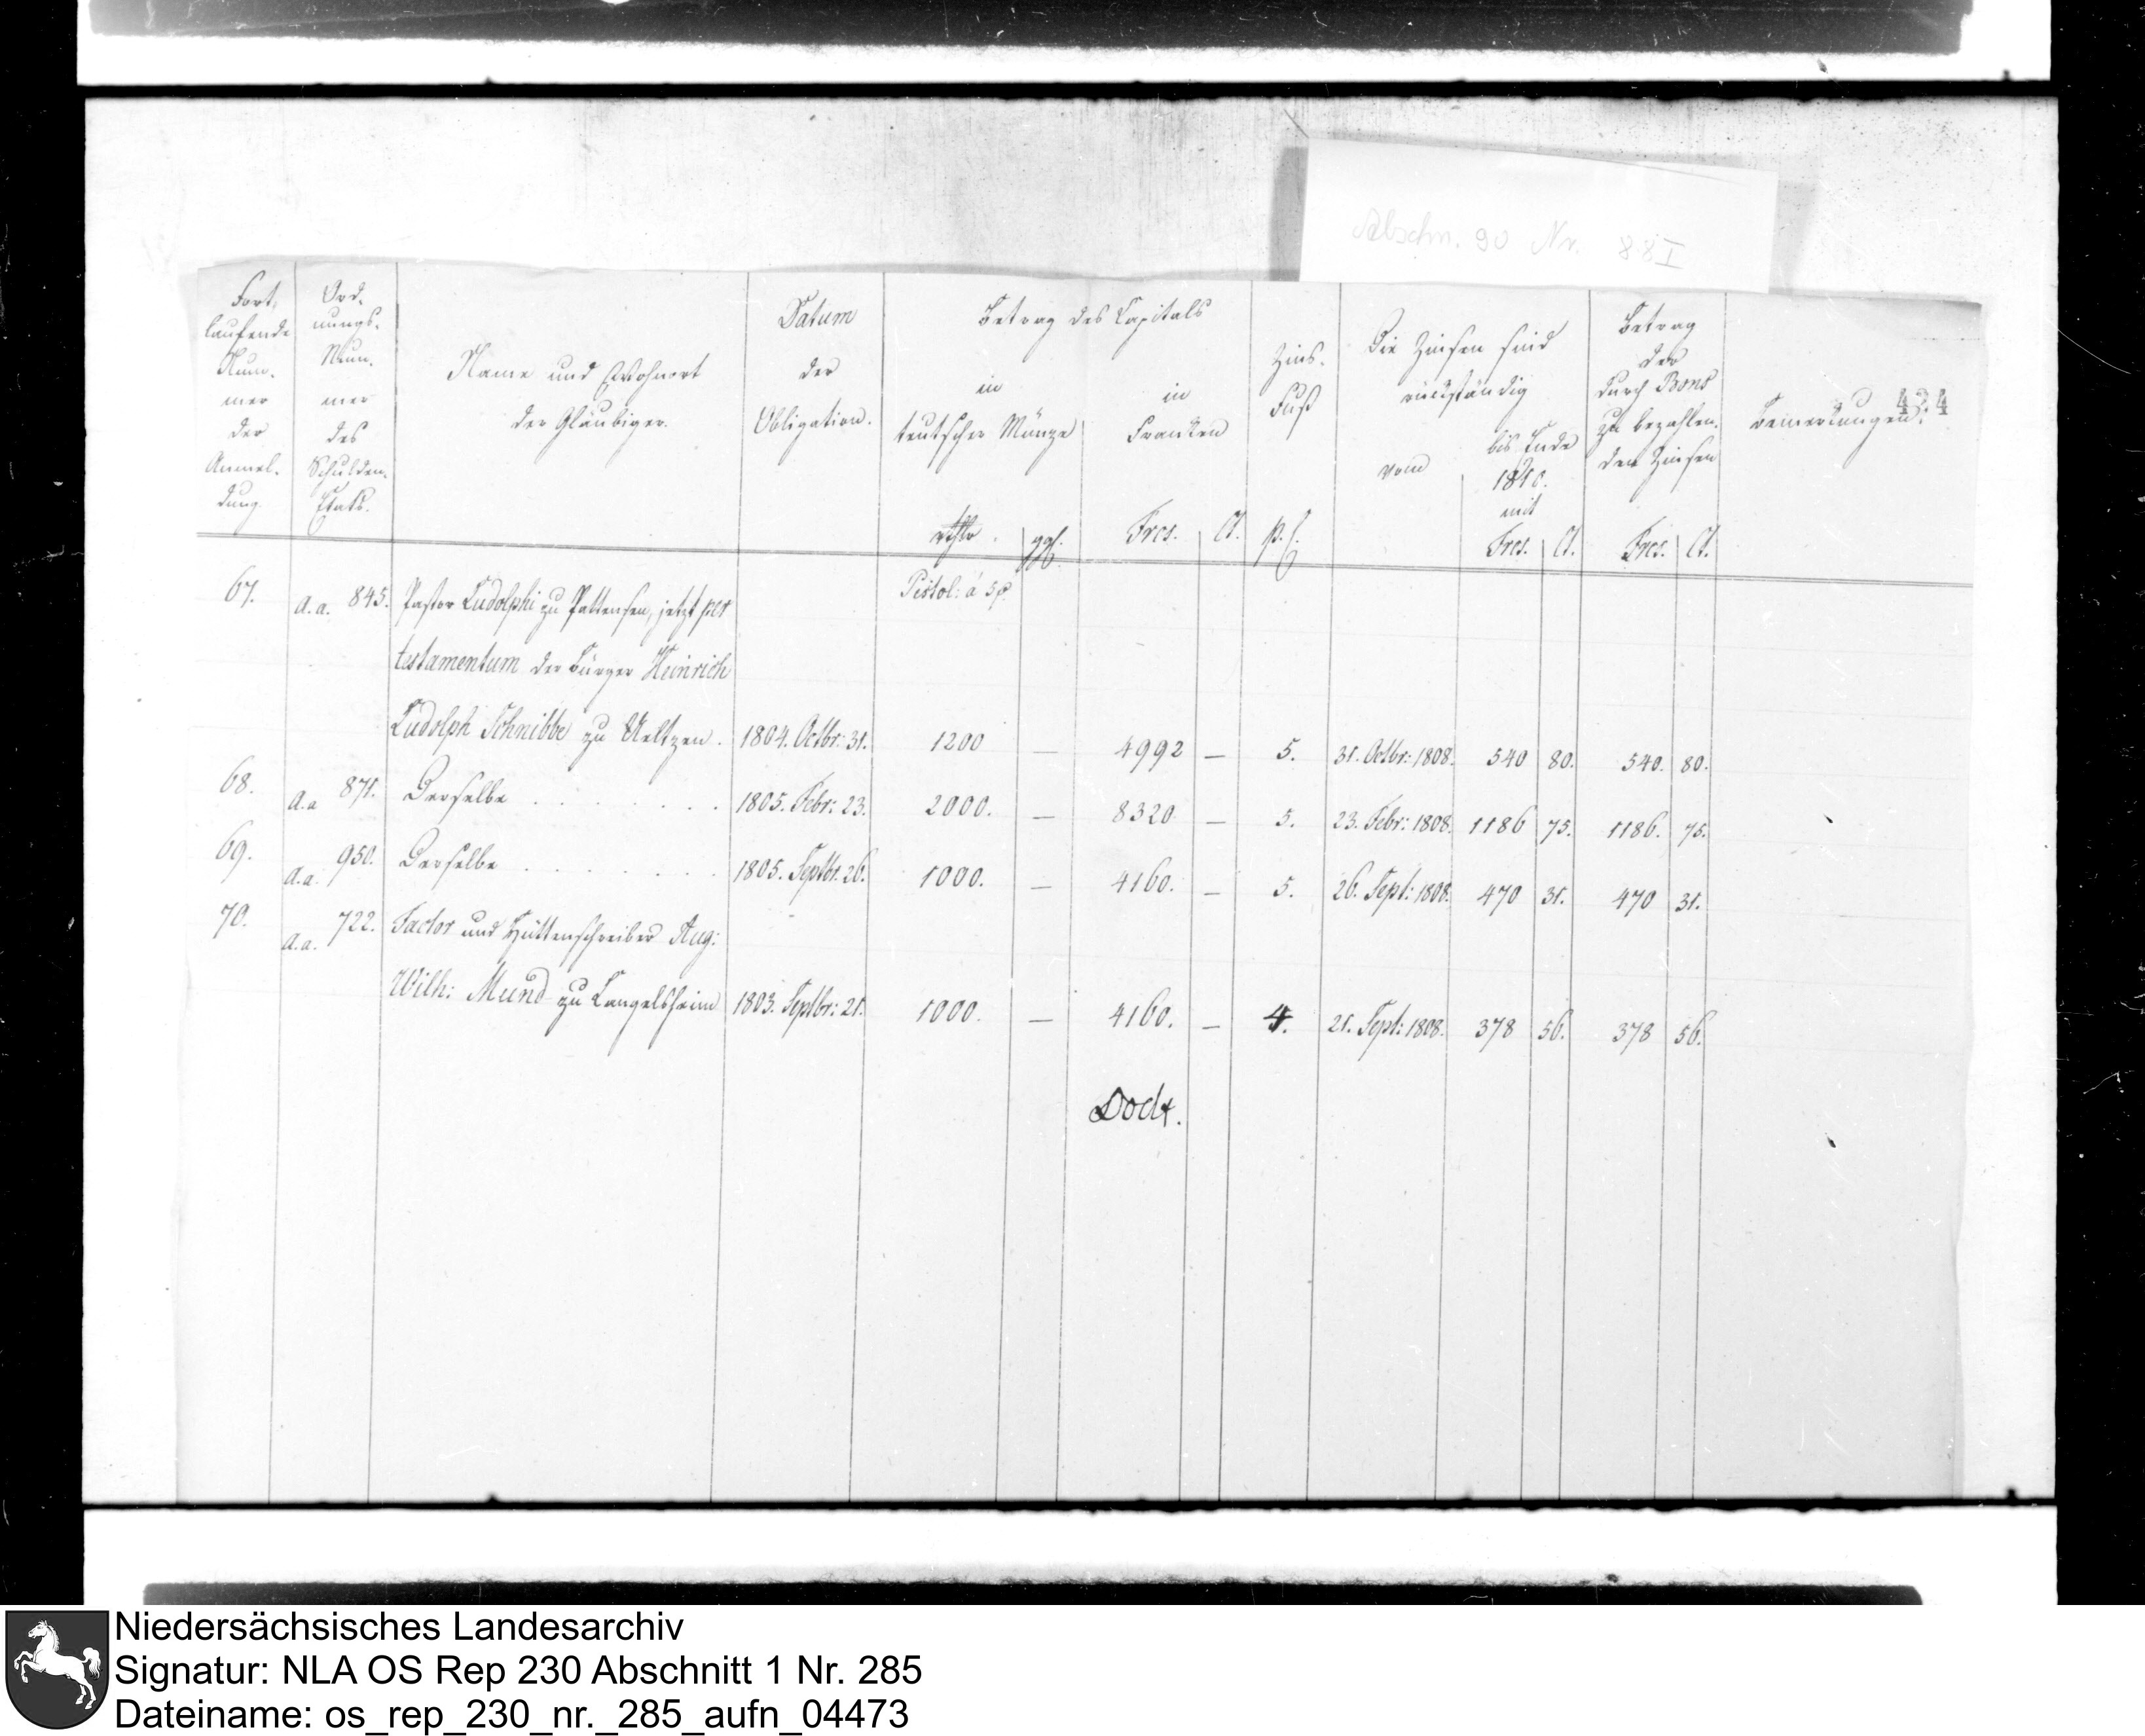 Abschn. 90 Nr. 88 I
434
Fort-
laufende
Num-
mer
der
Anmel-
dung.
Ord-
nungs-
Num-
mer
des
Schulden-
Etats.
Name und Wohnort
der Gläubiger.
Datum
der
Obligation.
Betrag des Capitals
in
teutscher Münze
in
Franken
Zins-
Fuß
Die Zinsen sind
rückständig
vom
bis Ende
1810.
mit
Betrag
der
durch Bons
zu bezahlen-
den Zinsen
Bemerkungen.
rthlr. ggl. Frcs. Ct. p.C. Frcs. Ct. Frcs. Ct.
Pistol: á 5 rt
67. a.a. 845. Pastor Ludolphi zu Pattensen, jetzt per
testamentum der Bürger Heinrich
Ludolph Schnibbe zu Ueltzen. 1804. Octbr: 31. 1200 — 4992 — 5. 31. Octbr: 1808. 540 80. 540. 80.
68. a.a 871. Derselbe . . . . . . . 1805. Febr: 23. 2000. — 8320 — 5. 23. Febr: 1808. 1186 75. 1186. 75.
69. a.a. 950. Derselbe . . . . . . . 1805. Septbr. 26. 1000. — 4160. — 5. 26. Sept: 1808. 470 31. 470 31.
70. a.a. 722. Factor und Hüttenschreiber Aug:
Wilh: Mund zu Langelsheim 1803. Septbr: 21. 1000. — 4160. — 4. 21. Sept: 1808. 378 56. 378 56.
Niedersächsisches Landesarchiv
Signatur: NLA OS Rep 230 Abschnitt 1 Nr. 285
Dateiname: os_rep_230_nr._285_aufn_04473